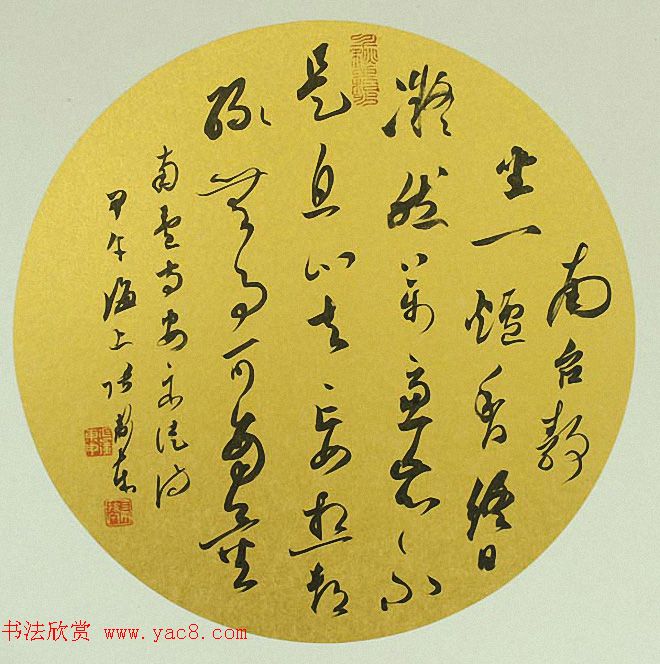 南台静
坐一炉香终日
凝然万虑忘不
是息心去妄想都
缘无事可商量
南台守安示徒诗
甲午海上张
书法欣赏 www.yac8.com